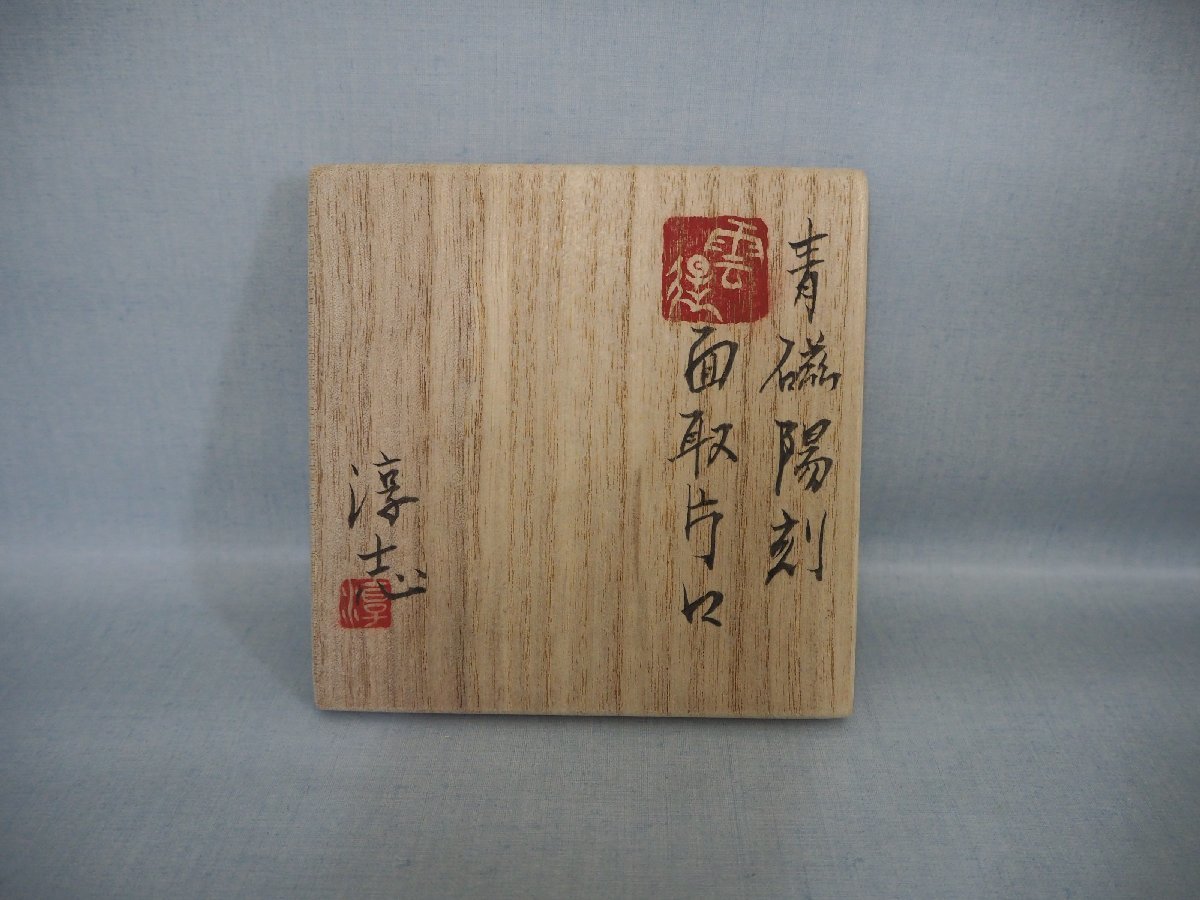 青磁陽刻
雲
面取片口
淳志
淳